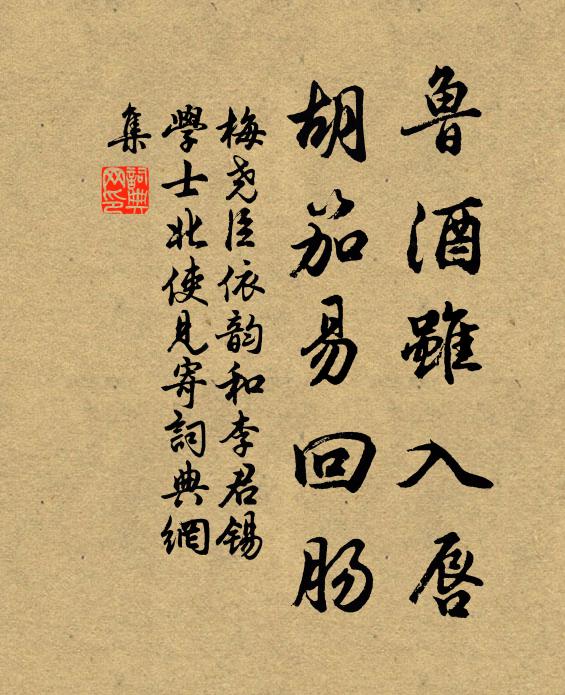 魯酒雖入唇
胡笳易回肠
梅尧臣依韵和李君锡
學士北使見寄詞典網
集
詞典
网印